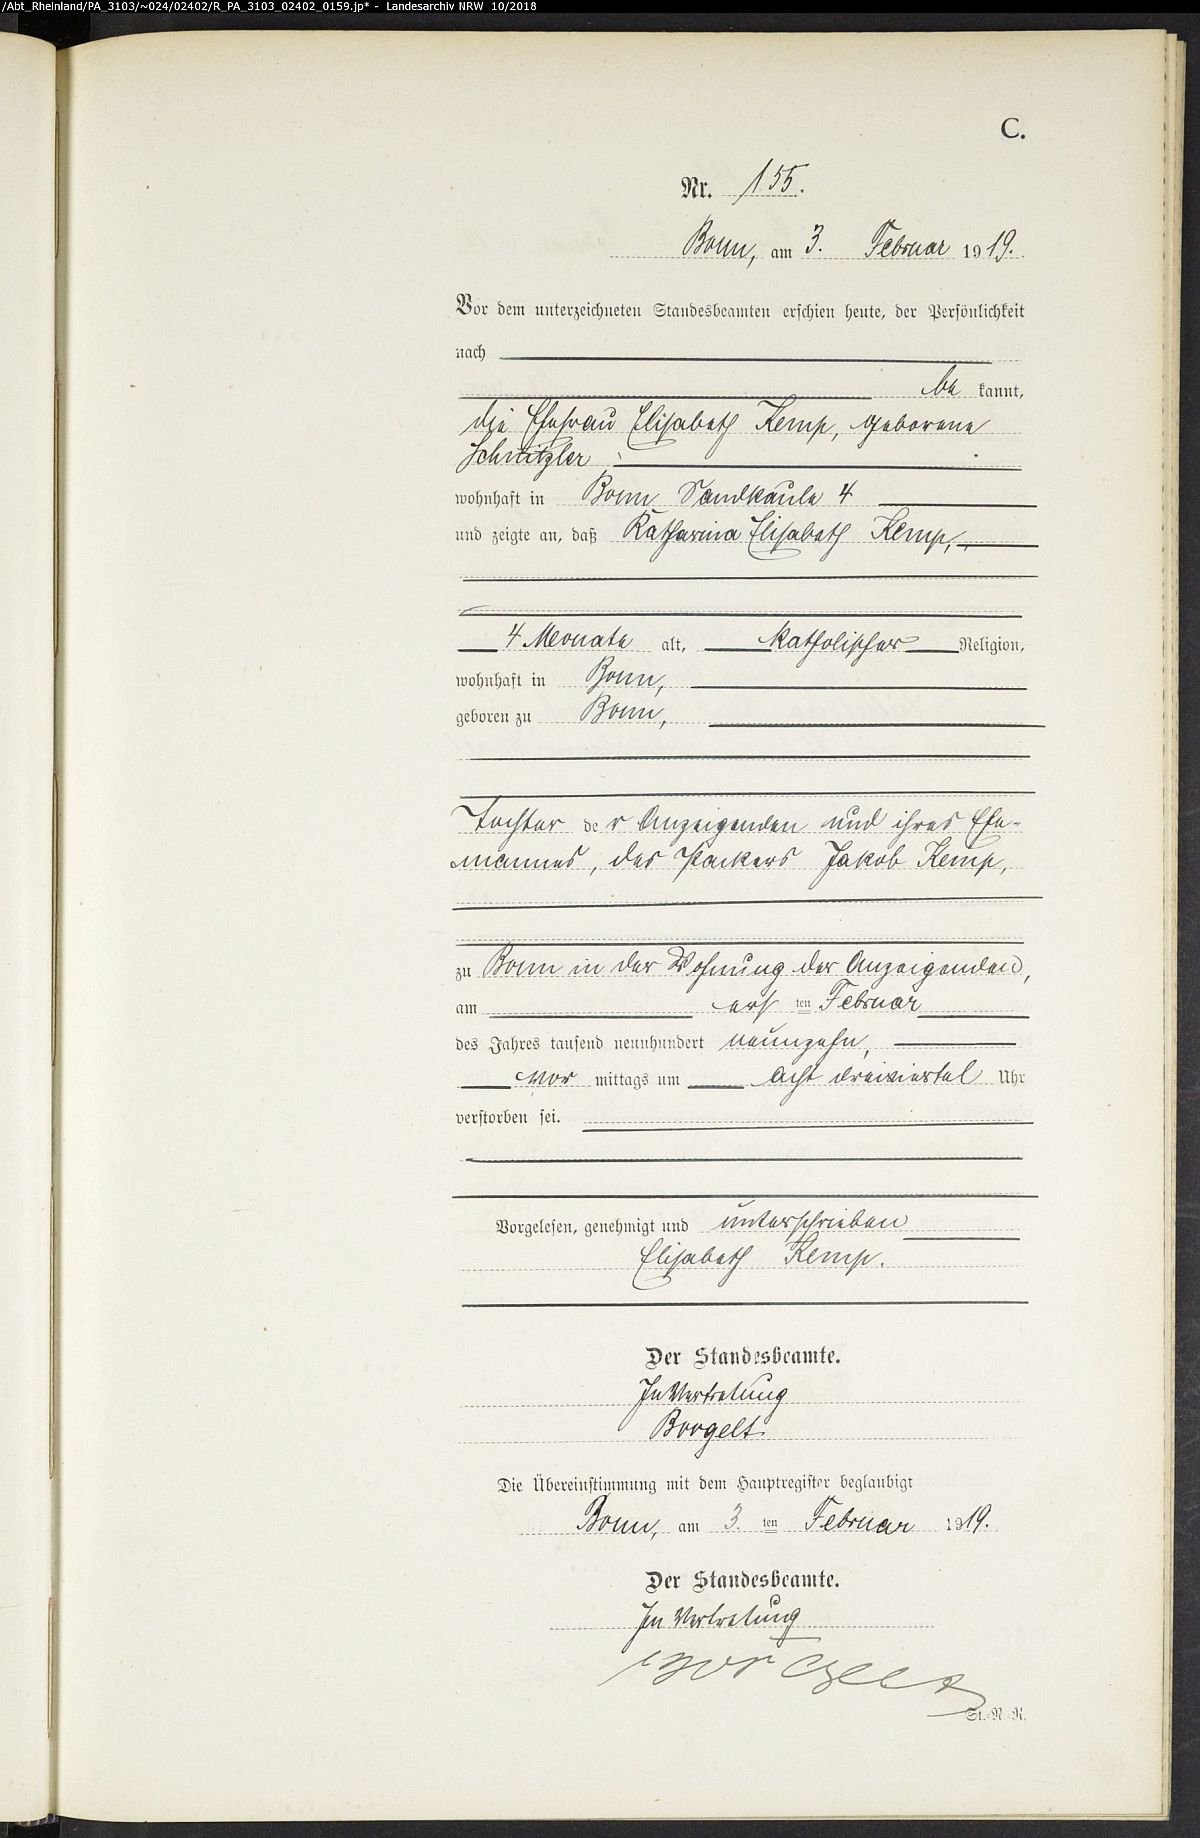 /Abt_Rheinland/PA_3103/~024/02402/R_PA_3103_02402_0159.jp* - Landesarchiv NRW 10/2018
C.
Nr. 155.
Bonn, am 3. Februar 1919.
Vor dem unterzeichneten Standesbeamten erschien heute, der Persönlichkeit
nach
be kannt,
die Ehefrau Elisabeth Kemp, geborene
Schnitzler
wohnhaft in Bonn Sandkaule 4
und zeigte an, daß Katharina Elisabeth Kemp,
4 Monate alt, katholischer Religion,
wohnhaft in Bonn,
geboren zu Bonn,
Tochter der Anzeigenden und ihres Ehe-
mannes, des Packers Jakob Kemp,
zu Bonn in der Wohnung der Anzeigenden,
am ersten Februar
des Jahres tausend neunhundert neunzehn,
vor mittags um acht dreiviertel Uhr
verstorben sei.
Vorgelesen, genehmigt und unterschrieben
Elisabeth Kemp.
Der Standesbeamte.
In Vertretung
Borgelt
Die Übereinstimmung mit dem Hauptregister beglaubigt
Bonn, am 3. ten Februar 1919.
Der Standesbeamte.
In Vertretung
Borgelt
St.-R.-R.